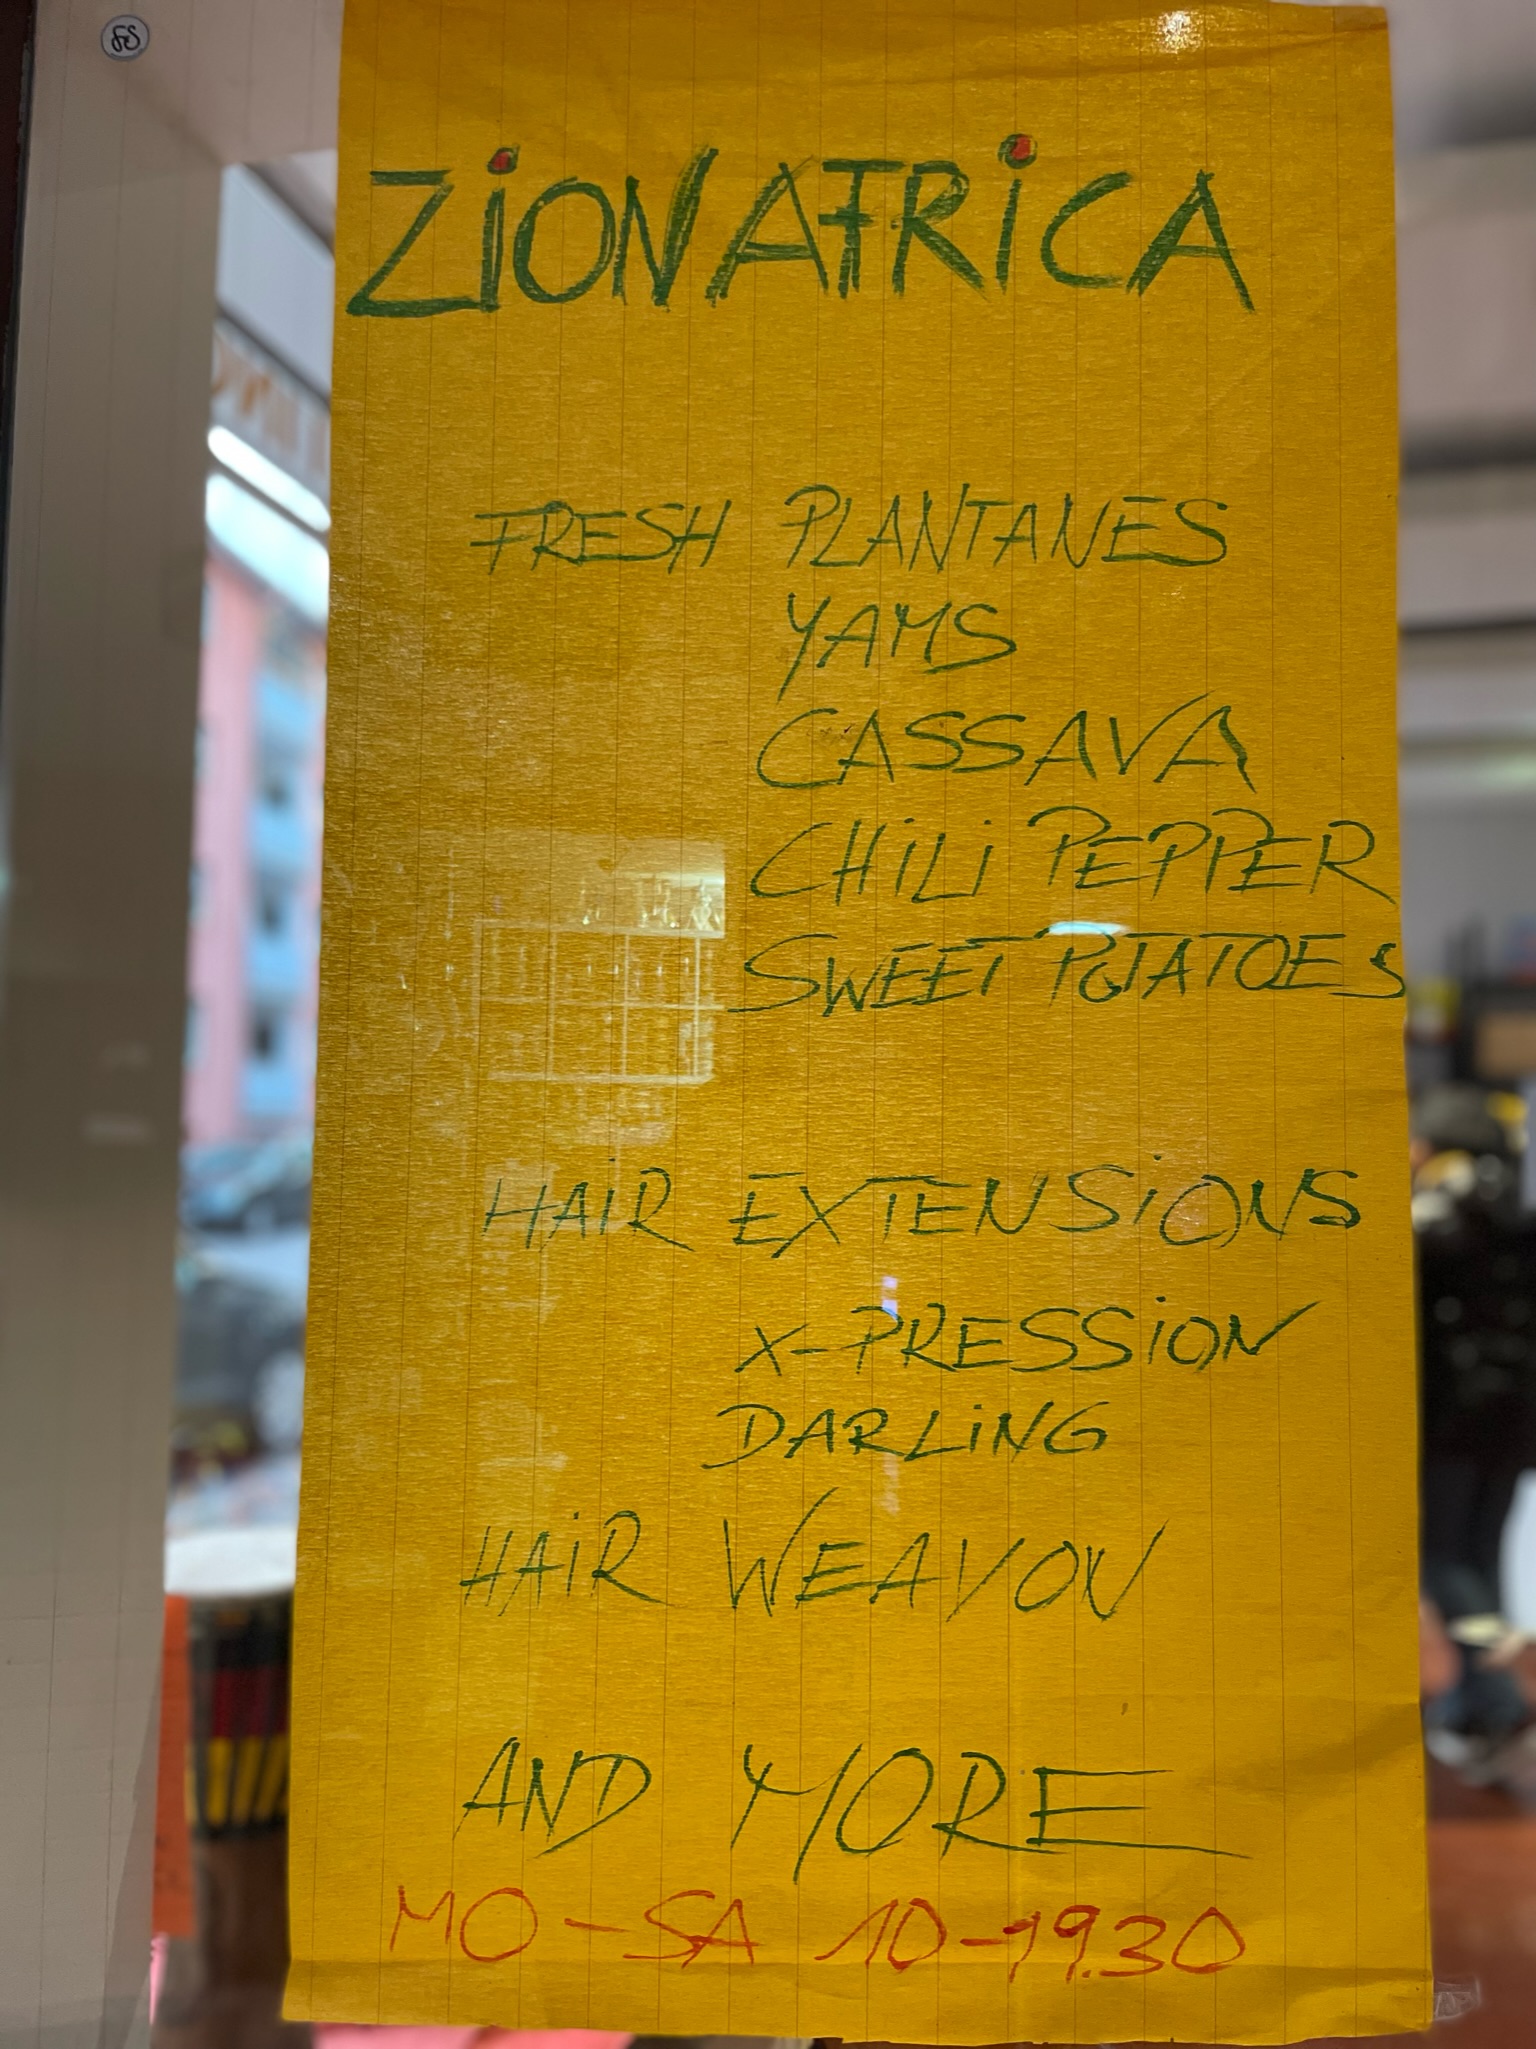 ZiON AFRiCA
FRESH PLANTANES
YAMS
CASSAVA
CHiLi PEPPER
SWEET POTATOES
HAiR EXTENSiONS
X-PRESSiON
DARLiNG
HAiR WEAVON
AND MORE
MO-SA 10-19.30